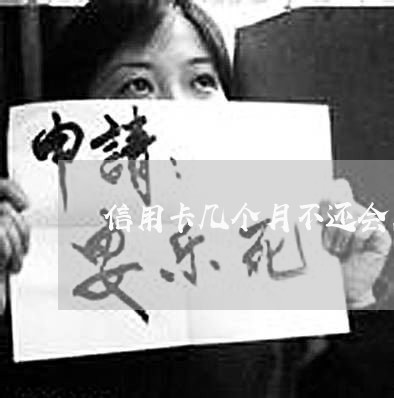 申請：
信用卡几个月不还会
安乐死